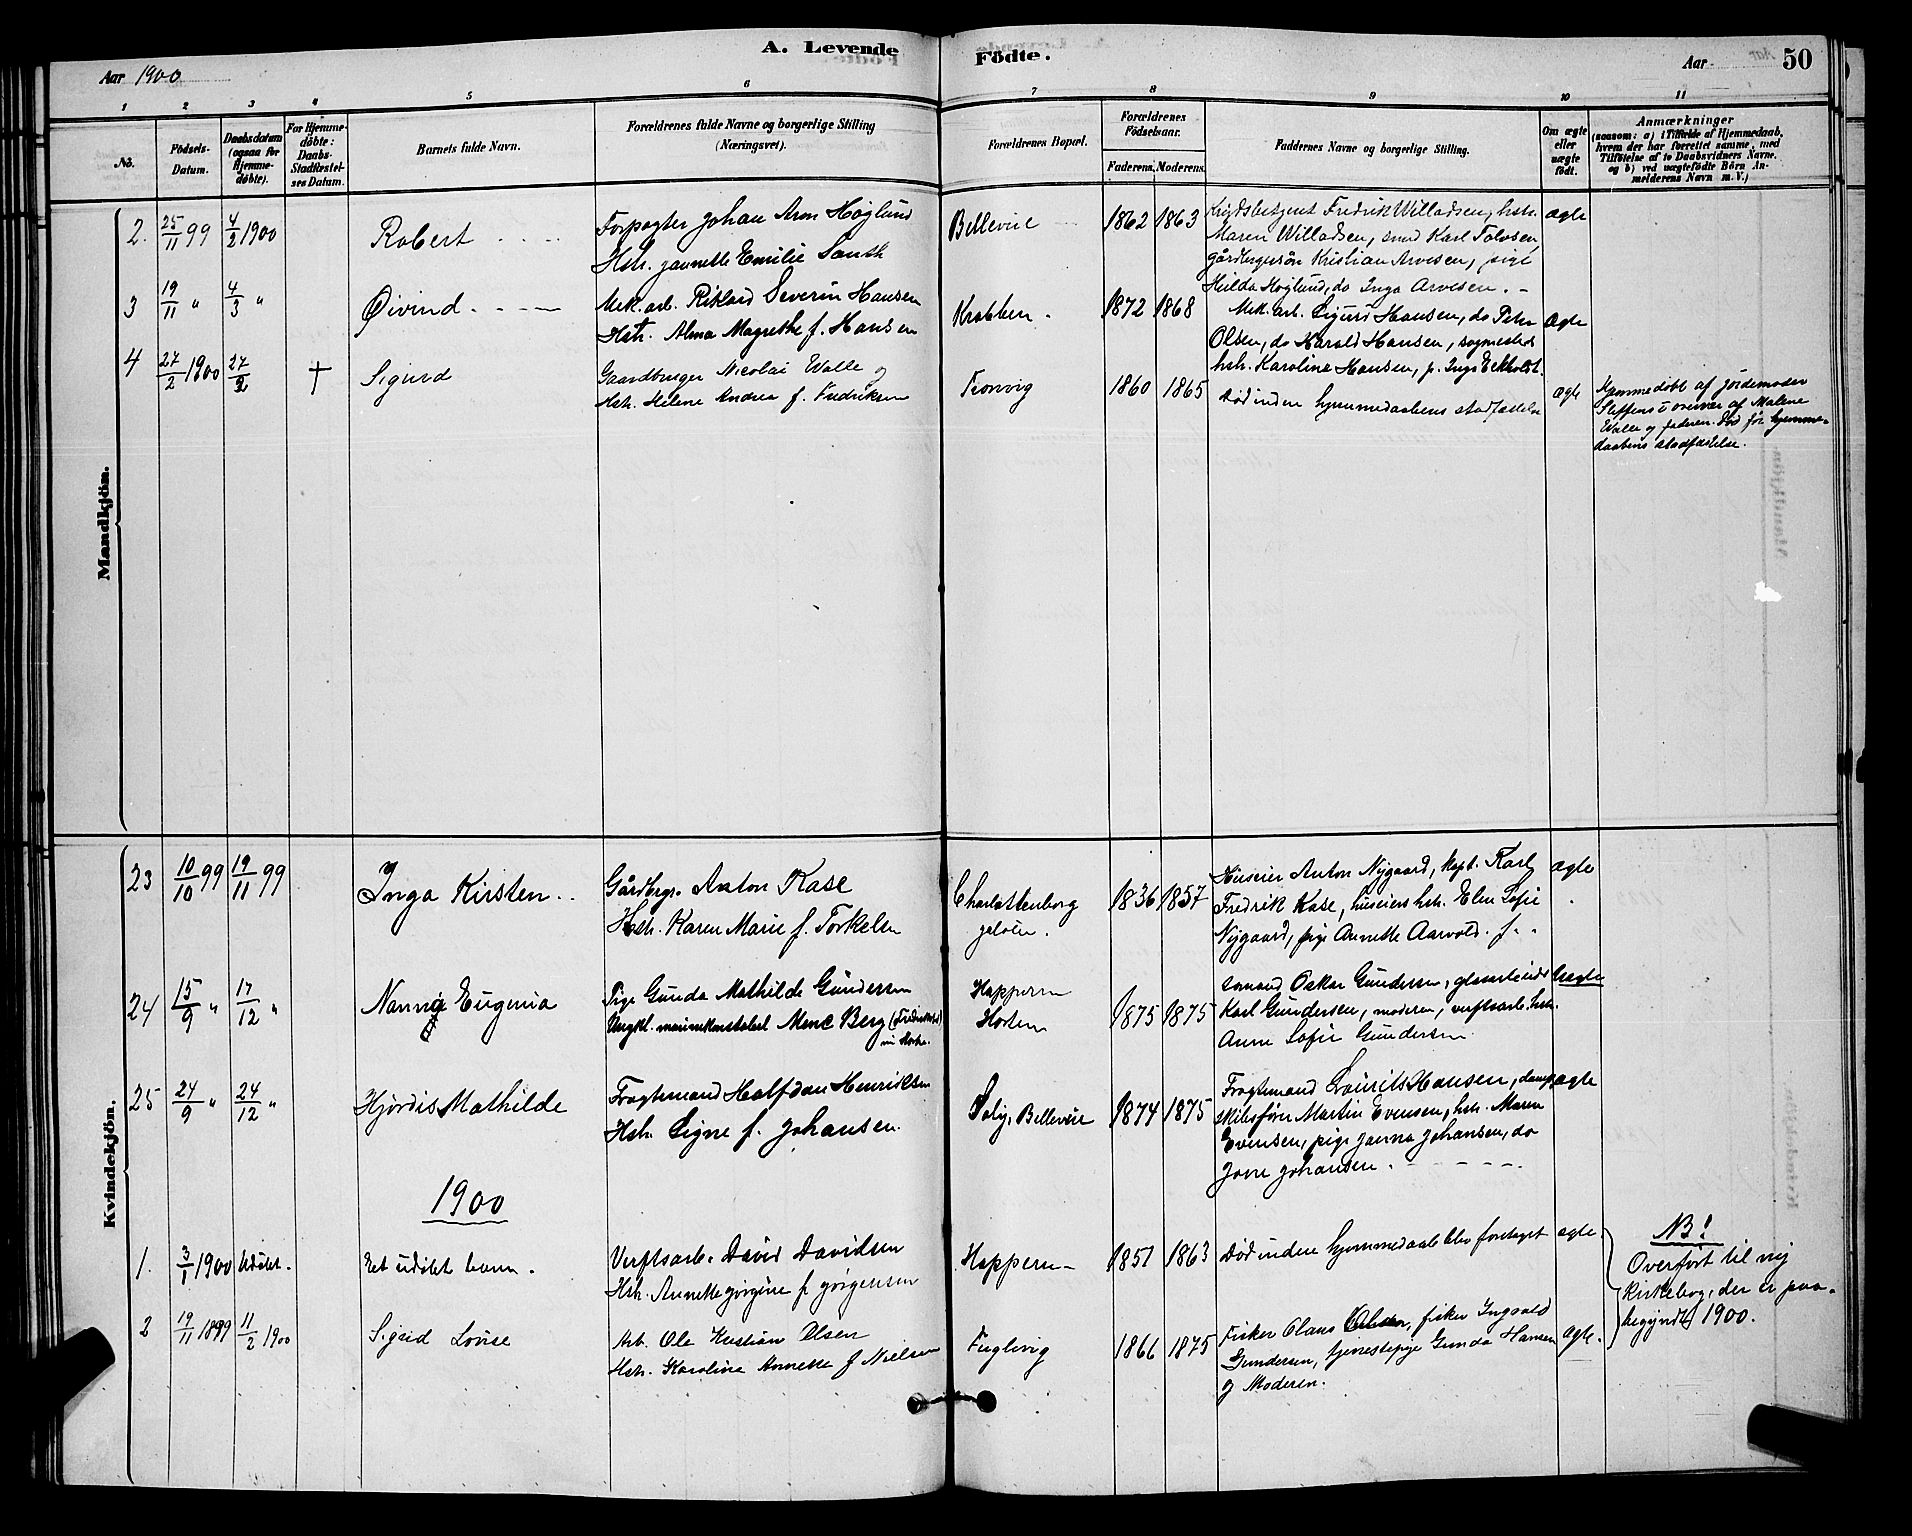 A. Levende Födte.
Aar 1900
Aar 50
1 2 3 4 5 6 7 8 9 10 11
No.
Födsels-Datum.
Daabsdatum (ogsaa for Hjemme-döbte).
For Hjemme-döbte: Daabs-Stadfæstel-ses Datum.
Barnets fulde Navn.
Forældrenes fulde Navne og borgerlige Stilling (Næringsvei).
Forældrenes Bopæl.
Forældrenes Födselsaar.
Faderens. Moderens.
Faddernes Navne og borgerlige Stilling.
Om ægte eller uægte födt.
Anmærkninger
(saasom: a) i Tilfælde af Hjemmedaab,
hvem der har forrettet samme, med
Tilföielse af to Daabsvidners Navne.
og b) ved uægtefödte Börn An-
melderens Navn m. V.)
Mandkjön.
2. 25/11 99 4/2 1900 Robert
Forpagter Johan Aron Høglund
Hstr. Jannette Emilie Santh
Bellevue 1862 1863
Fredrik Willadsen, hstr.
Maren Willadsen, smed Karl Tolvsen
gårdbrugersøn Kristian Arvesen, pige
Hilda Høglund, do Inga Arvesen.
ægte
3 19/11 " 4/3 " Øivind
Mek. arb. Rikard Severin Hansen
Hstr. Alma Magrethe f. Hansen
Krabben 1872 1868
Mek. arb. Sigurd Hansen, do Peter
Olsen, do Harald Hansen,
hstr. Karoline Hansen, p. Inga Eckholdt.
ægte
4 27/2 1900 27/2 † Sigurd
Gaardbruger Nicolai Walle og
Hstr. Helene Andrea f. Fredriksen
Tronvig 1860 1865
Død inden hjemmedaabens stadfæstelse
ægte
Hjemmedøbt af jordemoder
Steffens i overvær af Malene
Walle og faderen. Død før hjemme-
daabens stadfæstelse.
Kvindekjön.
23 10/10 99 19/11 99 Inga Kirsten
Gårdbrgr. Anton Kase
Hstr. Karen Marie f. Torkelsen
Charlottenborg
geløen.
1836 1857
Huseier Anton Nygaard, kapt. Karl
Fredrik Kase, huseiers hstr. Elen Sofie
Nygaard, pige Annette Aarvold.
ægte
24 15/9 " 17/12 " Nanny Eugenia
Pige Gunda Mathilde Gundersen
Ungkl. Mene Berg
Horten 1875 1875
Sømand Oskar Gundersen,
Karl Gundersen, moderen, verftsarb. hstr.
Anne Sofie Gundersen
Uægte
25 24/9 " 24/12 " Hjørdis Mathilde
Fragtemand Halfdan Henriksen
Hstr. Signe f. Johansen.
Bellevue 1874 1875
Fragtemand Laurits Hansen, damp-
skibsfører Martin Evensen, hstr. Maren
Evensen, pige Janna Johansen, do
Johansen.
ægte
1900
1. 3/1 1900 Udøbt. Et udøbt barn.
Verftsarb. David Davidsen
Hstr. Annette Jørgine f. Jørgensen
1851 1863
Død inden hjemmedaab blev foretaget
ægte.
NB!
Overført til ny
kirkebog, der er paa-
begyndt 1900.
2 19/11 1899 11/2 1900 Sigrid Louise
Arb. Ole Kristian Olsen
Hstr. Karoline Annette f. Nielsen
Fuglevig 1866 1875
Fisker Olaus Olsen, fisker Ingvald
Gundersen, tjenestepige Gunda Hansen
og Moderen.
ægte.